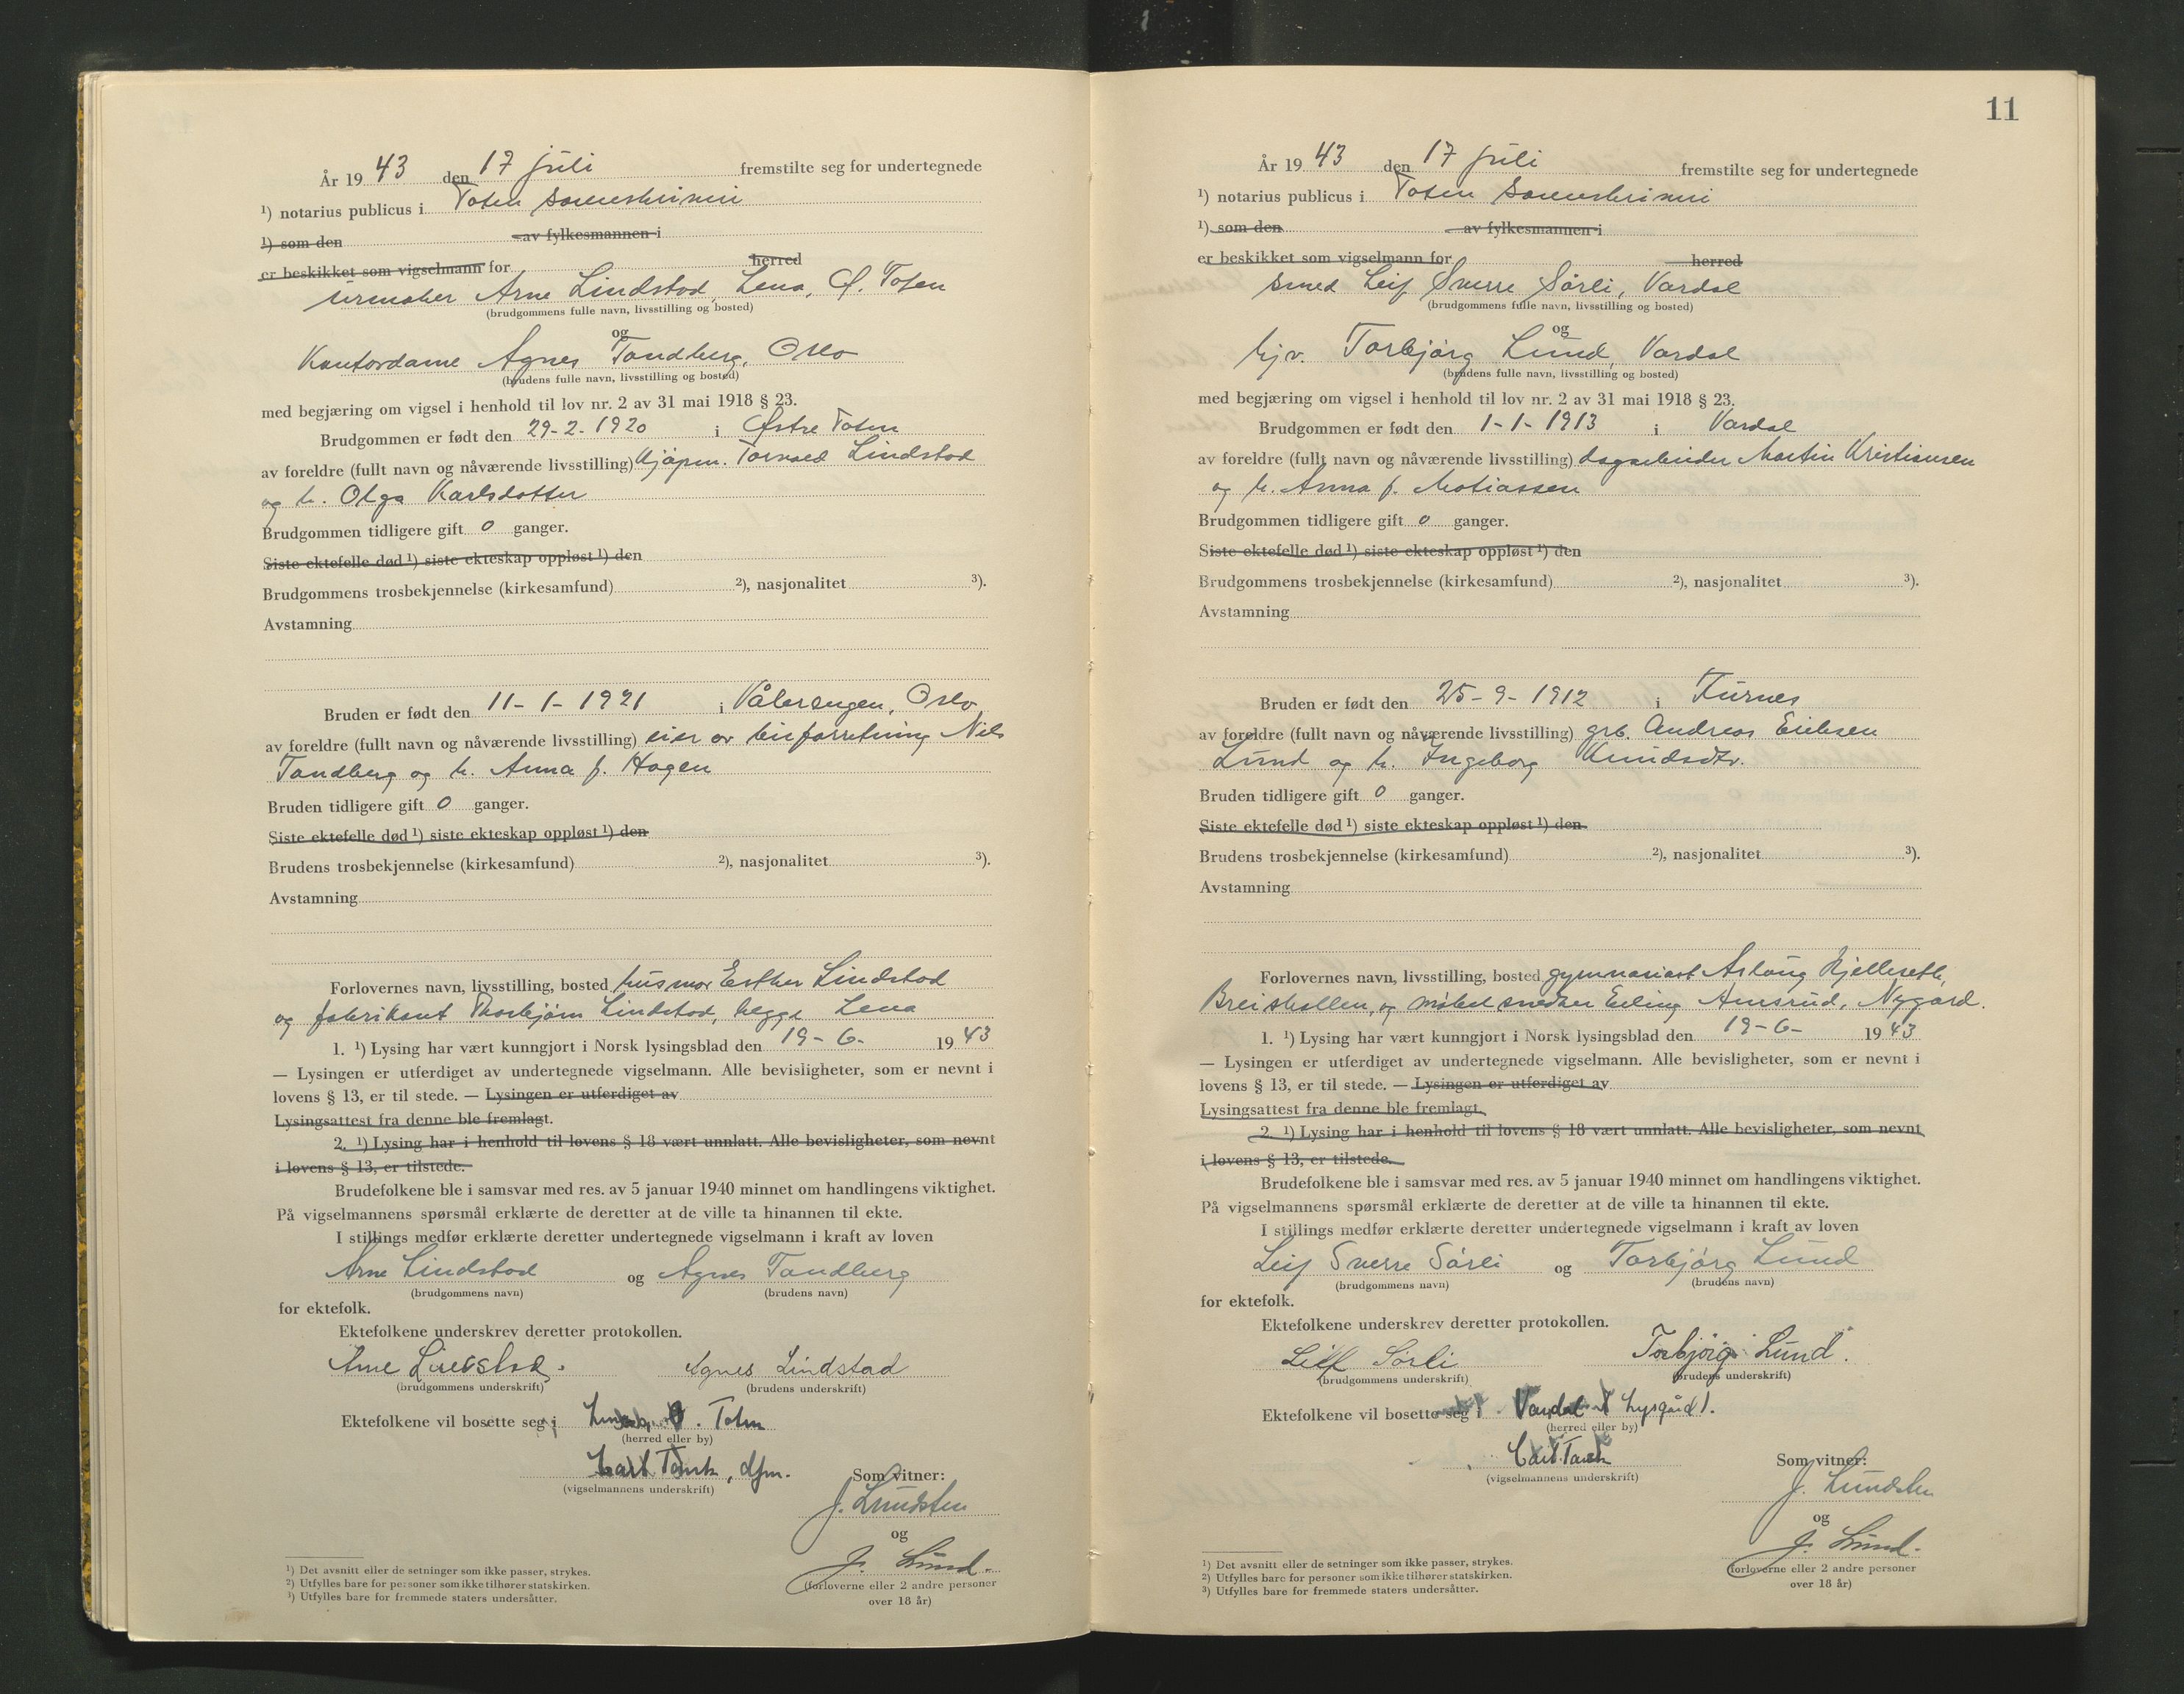 År 19 43 den 17 juli fremstilte seg for undertegnede
¹) notarius publicus i Toten sorenskriveri
¹) som den av fylkesmannen i
er beskikket som vigselmann for herred
urmaker Arne Lindstad, Lena, Ø. Toten
(brudgommens fulle navn, livsstilling og bosted)
og
Kontordame Agnes Tandberg, Oslo
(brudens fulle navn, livsstilling og bosted)
med begjæring om vigsel i henhold til lov nr. 2 av 31 mai 1918 § 23.
Brudgommen er født den 29-2-1920 i Østre Toten
av foreldre (fullt navn og nåværende livsstilling) kjøpm. Torvald Lindstad
og h. Olga Karlsdatter
Brudgommen tidligere gift 0 ganger.
Siste ektefelle død ¹) siste ekteskap oppløst ¹) den
Brudgommens trosbekjennelse (kirkesamfund) ²), nasjonalitet ³).
Avstamning
Bruden er født den 11-1-1921 i Vålerengen, Oslo
av foreldre (fullt navn og nåværende livsstilling) eier av bilforretning Nils
Tandberg og h. Anna f. Hagen
Bruden tidligere gift 0 ganger.
Siste ektefelle død ¹) siste ekteskap oppløst ¹) den
Brudens trosbekjennelse (kirkesamfund) ²), nasjonalitet ³).
Avstamning
Forlovernes navn, livsstilling, bosted husmor Esther Lindstad
og fabrikant Thorbjørn Lindstad, begge Lena
1. ¹) Lysing har vært kunngjort i Norsk lysingsblad den 19-6- 19 43
— Lysingen er utferdiget av undertegnede vigselmann. Alle bevisligheter, som er nevnt i
lovens § 13, er til stede. — Lysingen er utferdiget av
Lysingsattest fra denne ble fremlagt.
2. ¹) Lysing har i henhold til lovens § 18 vært unnlatt. Alle bevisligheter, som nevnt
i lovens § 13, er tilstede.
Brudefolkene ble i samsvar med res. av 5 januar 1940 minnet om handlingens viktighet.
På vigselmannens spørsmål erklærte de deretter at de ville ta hinannen til ekte.
I stillings medfør erklærte deretter undertegnede vigselmann i kraft av loven
Arne Lindstad og Agnes Tandberg
(brudgommens navn) (brudens navn)
for ektefolk.
Ektefolkene underskrev deretter protokollen.
Arne Lindstad. Agnes Lindstad
(brudgommens underskrift) (brudens underskrift)
Ektefolkene vil bosette seg i Lena, Ø. Toten
(herred eller by)
Carl Tank, dfm.
(vigselmannens underskrift)
Som vitner:
J. Lundsten
og
J. Lund.
(forloverne eller 2 andre personer
over 18 år)
¹) Det avsnitt eller de setninger som ikke passer, strykes.
²) Utfylles bare for personer som ikke tilhører statskirken.
³) Utfylles bare for fremmede staters undersåtter.
11
År 19 43 den 17 juli fremstilte seg for undertegnede
¹) notarius publicus i Toten sorenskriveri
¹) som den av fylkesmannen i
er beskikket som vigselmann for herred
smed Leif Sverre Sørli, Vardal
(brudgommens fulle navn, livsstilling og bosted)
og
hjv. Torbjørg Lund, Vardal
(brudens fulle navn, livsstilling og bosted)
med begjæring om vigsel i henhold til lov nr. 2 av 31 mai 1918 § 23.
Brudgommen er født den 1-1-1913 i Vardal
av foreldre (fullt navn og nåværende livsstilling) dagarbeider Martin Kristiansen
og h. Anna f. Matiassen
Brudgommen tidligere gift 0 ganger.
Siste ektefelle død ¹) siste ekteskap oppløst ¹) den
Brudgommens trosbekjennelse (kirkesamfund) ²), nasjonalitet ³).
Avstamning
Bruden er født den 25-9-1912 i Furnes
av foreldre (fullt navn og nåværende livsstilling) grb. Andreas Eriksen
Lund og h. Ingeborg Knudsdtr.
Bruden tidligere gift 0 ganger.
Siste ektefelle død ¹) siste ekteskap oppløst ¹) den
Brudens trosbekjennelse (kirkesamfund) ²), nasjonalitet ³).
Avstamning
Forlovernes navn, livsstilling, bosted gymnasiast Aslaug
og møbelsnedker Erling Amsrud, Nygard.
1. ¹) Lysing har vært kunngjort i Norsk lysingsblad den 19-6- 19 43
— Lysingen er utferdiget av undertegnede vigselmann. Alle bevisligheter, som er nevnt i
lovens § 13, er til stede. — Lysingen er utferdiget av
Lysingsattest fra denne ble fremlagt.
2. ¹) Lysing har i henhold til lovens § 18 vært unnlatt. Alle bevisligheter, som nevnt
i lovens § 13, er tilstede.
Brudefolkene ble i samsvar med res. av 5 januar 1940 minnet om handlingens viktighet.
På vigselmannens spørsmål erklærte de deretter at de ville ta hinannen til ekte.
I stillings medfør erklærte deretter undertegnede vigselmann i kraft av loven
Leif Sverre Sørli og Torbjørg Lund
(brudgommens navn) (brudens navn)
for ektefolk.
Ektefolkene underskrev deretter protokollen.
Leif Sørli Torbjørg Lund.
(brudgommens underskrift) (brudens underskrift)
Ektefolkene vil bosette seg i Vardal
(herred eller by)
Carl Tank
(vigselmannens underskrift)
Som vitner:
J. Lundsten
og
J. Lund.
(forloverne eller 2 andre personer
over 18 år)
¹) Det avsnitt eller de setninger som ikke passer, strykes.
²) Utfylles bare for personer som ikke tilhører statskirken.
³) Utfylles bare for fremmede staters undersåtter.